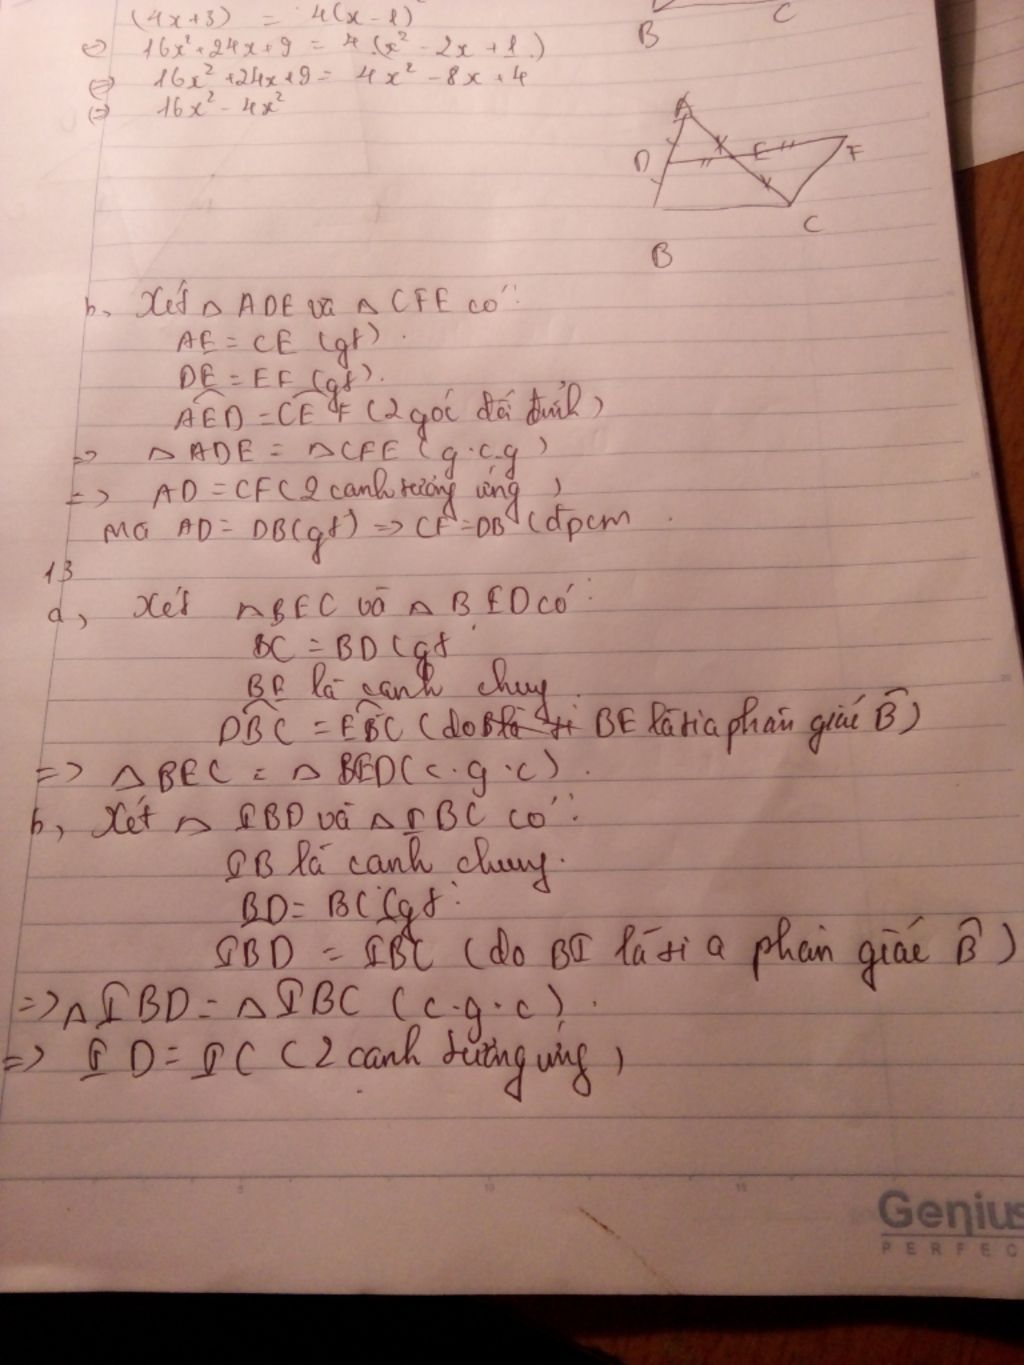 (4x+3) = 4(x-1)²
⇔ 16x²+24x+9 = 4(x²-2x+1)
⇔ 16x²+24x+9 = 4x²-8x+4
⇔ 16x²-4x²
B C
A
D E F
C
B
b, Xét △ADE và △CFE có:
AE = CE (gt)
DE = EF (gt).
AED = CEF (2 góc đối đỉnh)
=> △ADE = △CFE (g.c.g)
=> AD = CF (2 cạnh tương ứng)
Mà AD = DB(gt) => CF = DB (đpcm
13
a, Xét △BEC và △BED có:
BC = BD (gt
BE là cạnh chung
DBC = EBC (do BE là tia phân giác B)
=> △BEC = △BED (c.g.c).
b, Xét △IBD và △IBC có:
IB là cạnh chung.
BD = BC (gt
IBD = IBC (do BI là tia phân giác B)
=> △IBD = △IBC (c.g.c).
=> ID = IC (2 cạnh tương ứng)
5 10 15
Genius
PERFEC